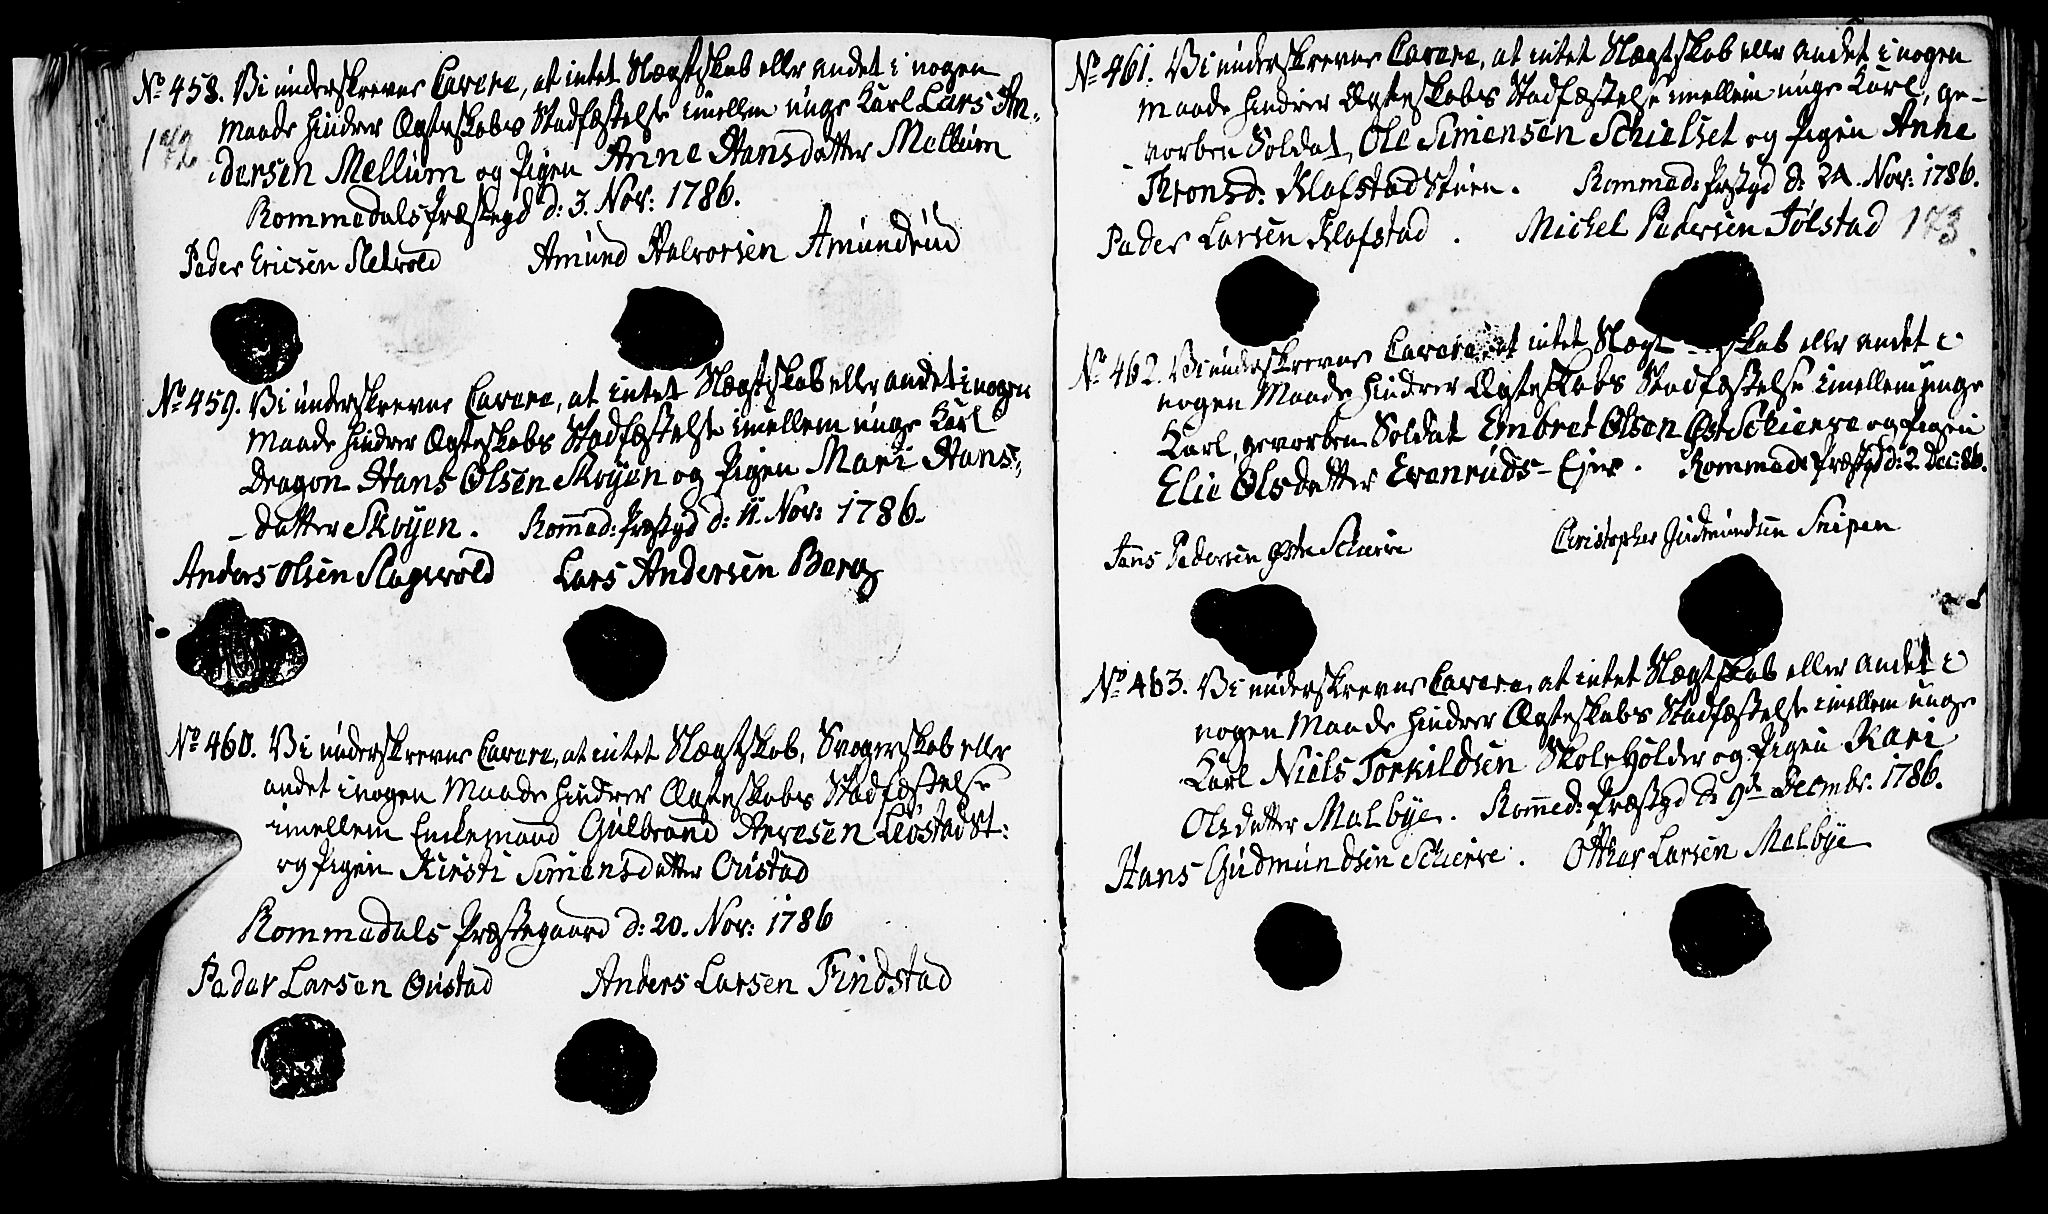 No 458. Vi underskrevne Cavere, at intet Slægtskab eller andet i nogen
Maade hindrer Ægteskabs Stadfæstelse imellem unge Karl Lars An-
172
dersen Mellum og Pigen Anne Hansdatter Mellum
Rommedals Præstegd d: 3. Nov: 1786.
Peder Ericsen Sletvold Amund Halvorsen Amundrud
No 459. Vi underskrevne Cavere, at intet Slægtskab eller andet i nogen
Maade hindrer Ægteskabs Stadfæstelse imellem unge Karl
Dragon Hans Olsen Skoyen og Pigen Mari Hans-
datter Skoyen. Rommed: Præstgd d: 11. Nov: 1786.
Anders Olsen Slagsvold Lars Andersen Berg
No 460. Vi underskrevne Cavere, at intet Slægtskab, Svogerskab eller
andet i nogen Maade hindrer Ægteskabs Stadfæstelse
imellem Enkemand Gulbrand Arvesen Lövstad St:
og Pigen Kirsti Simensdatter Oustad
Rommedals Præstegaard d: 20. Nov: 1786
Peder Larsen Oustad Anders Larsen Findstad
No 461. Vi underskrevne Cavere, at intet Slægtskab eller andet i nogen
Maade hindrer Ægteskabs Stadfæstelse imellem unge Karl, ge-
vorben Soldat, Ole Simensen Schielset og Pigen Anne
Tronsd: Klafstad Stuen. Rommed: Præstgd d: 24. Nov: 1786.
Peder Larsen Klafstad. Michel Pedersen Jølstad 173
No 462. Vi underskrevne Cavere, at intet Slægtskab eller andet i
nogen Maade hindrer Ægteskabs Stadfæstelse imellem unge
Karl, gevorben Soldat Embret Olsen Øst Schierre og Pigen
Elie Olsdatter Evenruds-Ejer. Rommed: Præstgd d: 2. Dec: 86.
Jens Pedersen Østre Schierre Christopher Gudmundsen Snipen
No 463. Vi underskrevne Cavere, at intet Slægtskab eller andet i
nogen Maade hindrer Ægteskabs Stadfæstelse imellem unge
Karl Niels Torkildsen Skoleholder og Pigen Kari
Olsdatter Malbye. Rommed: Præstgd d: 9de Decmbr. 1786.
Hans Gudmundsen Schierre. Otther Larsen Malbye